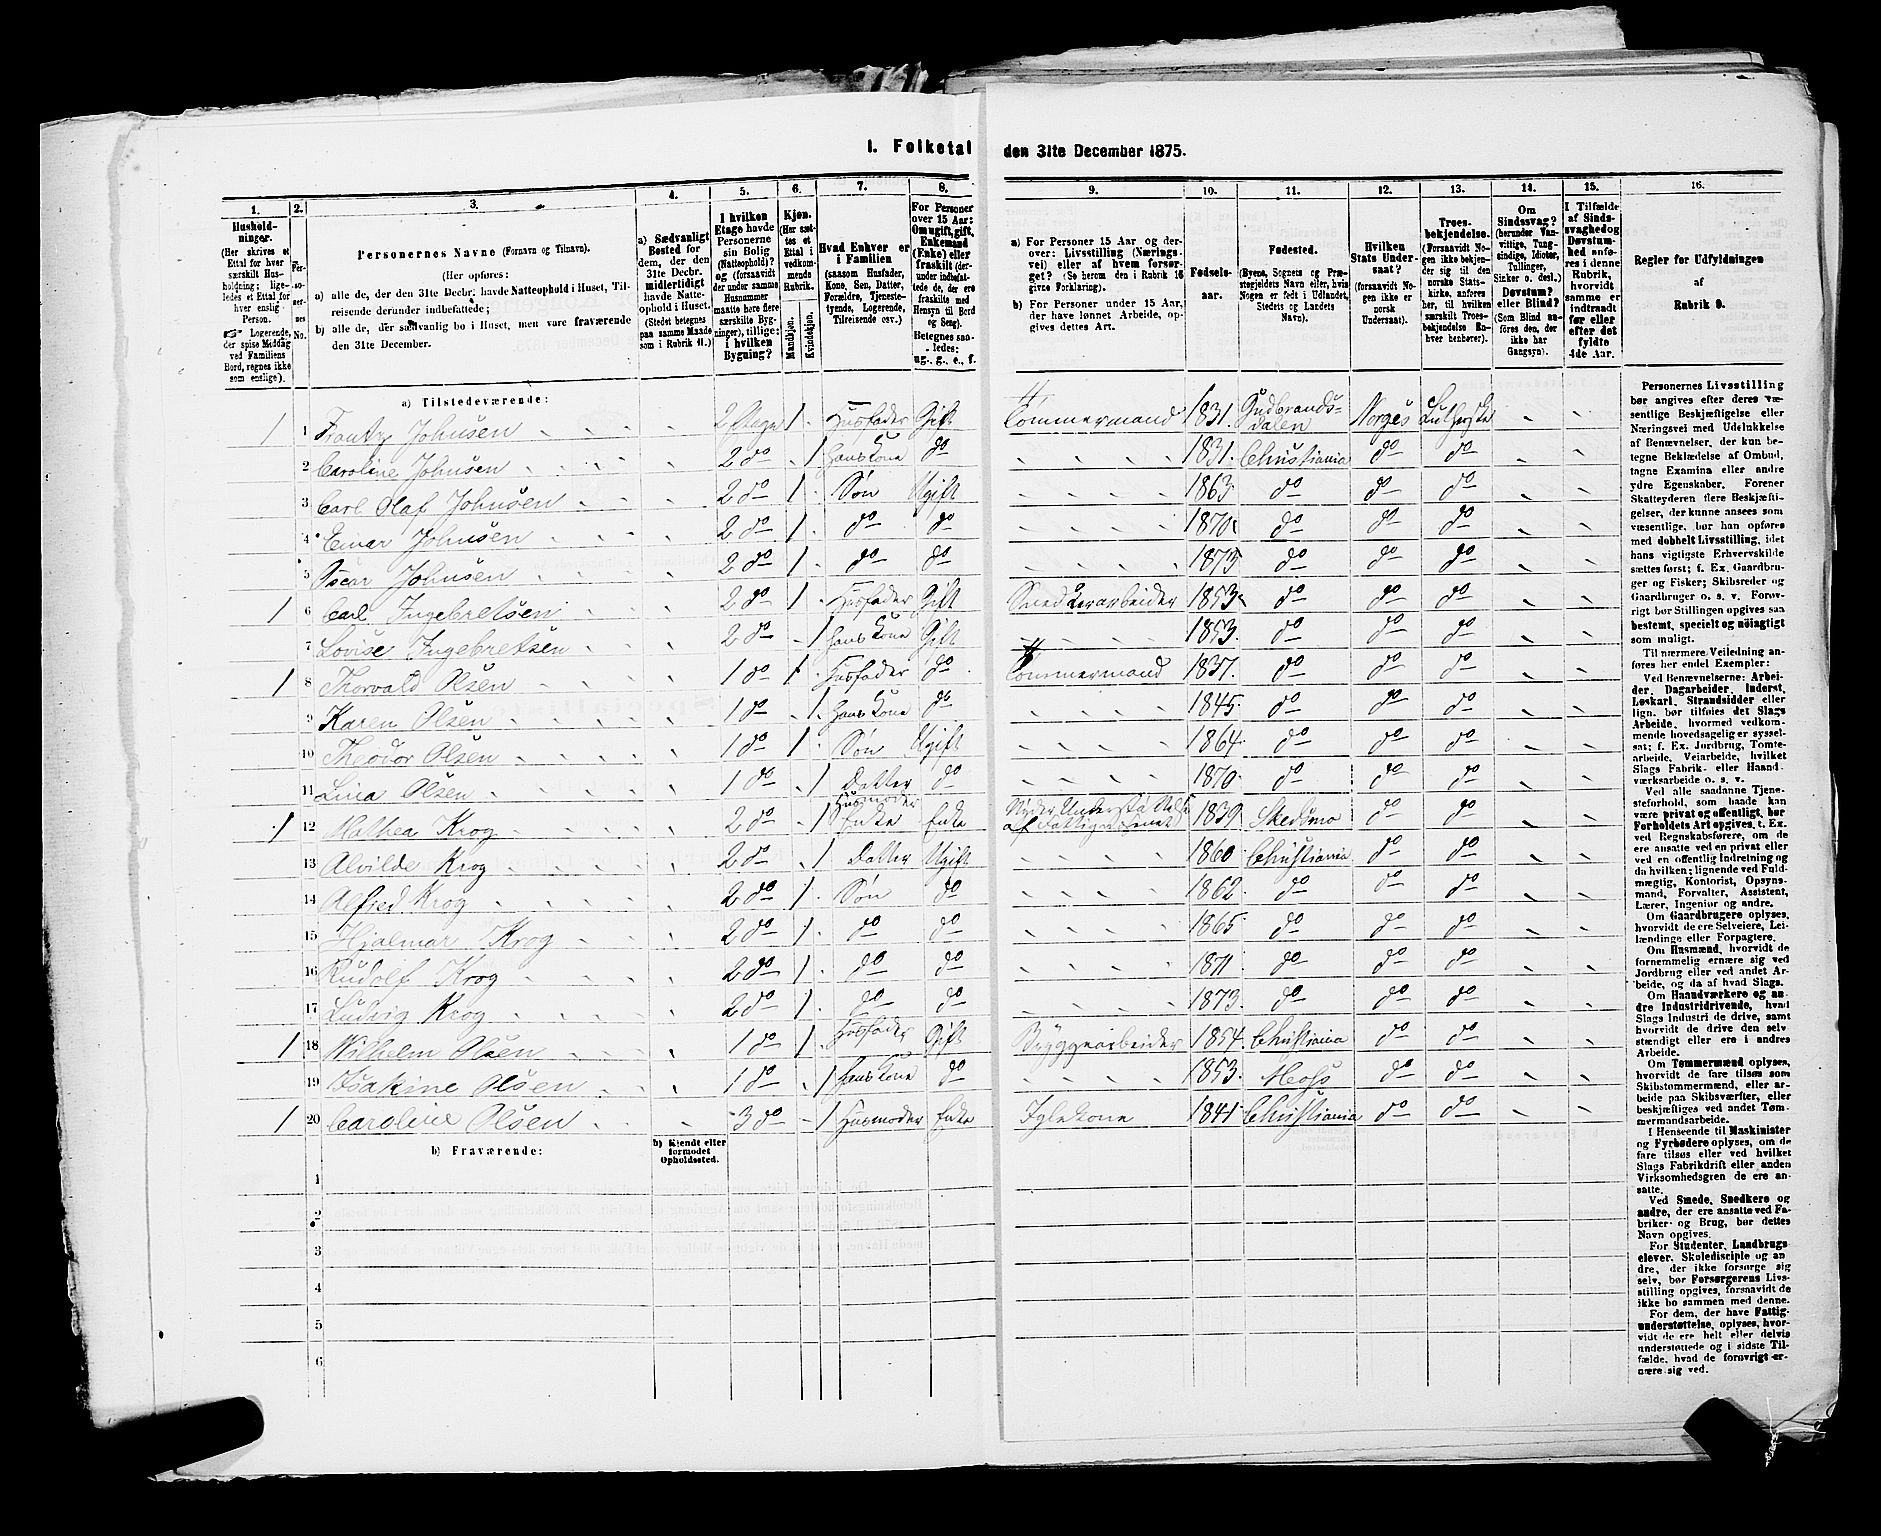 I. Folketal den 31te December 1875.
1. 2. 3. 4. 5. 6. 7. 8. 9. 10. 11. 12. 13. 14. 15. 16.
Hushold-
ninger.
(Her skrives et
Ettal for hver
særskilt Hus-
holdning; lige-
ledes et Ettal for
hver enslig
Person.
☞ Logerende,
der spise Middag
ved Familiens
Bord, regnes ikke
som enslige).
Personernes No.
Personernes Navne (Fornavn og Tilnavn).
(Her opføres:
a) alle de, der den 31te Decbr. havde Natteophold i Huset, Til-
reisende derunder indbefattede;
b) alle de, der sædvanlig bo i Huset, men vare fraværende
den 31te December.
a) Sædvanligt
Bosted for
dem, der den
31te Decbr.
midlertidigt
havde Natte-
ophold i Huset.
(Stedet betegnes
paa samme Maade
som i Rubrik 11.)
I hvilken
Etage havde
Personerne
sin Bolig
(Natteophold)?
og (forsaavidt
der under samme
Husnummer
maatte høre flere
særskilte Byg-
ninger), tillige:
i hvilken
Bygning?
Kjøn.
(Her sæt-
tes et
Ettal i
vedkom-
mende
Rubrik.
Mandkjøn.
Kvindekjøn.
Hvad Enhver er
i Familien
(saasom Husfader,
Kone, Søn, Datter,
Forældre, Tjeneste-
tyende, Logerende,
Tilreisende osv.)
For Personer
over 15 Aar:
Om ugift, gift,
Enkemand
(Enke) eller
fraskilt (der-
under indbefat-
tede de, der ere
fraskilte med
Hensyn til Bord
og Seng).
Betegnes saa-
ledes:
ug., g., e., f.
a) For Personer 15 Aar og der-
over: Livsstilling (Nærings-
vei) eller af hvem forsør-
get? (Se herom den i Rubrik 16
givne Forklaring).
b) For Personer under 15 Aar,
der have lønnet Arbeide, op-
gives dettes Art.
Fødsels-
aar.
Fødested.
(Byens, Sognets og Præ-
stegjeldets Navn eller, hvis
Nogen er født i Udlandet,
Stedets og Landets
Navn).
Hvilken
Stats Under-
saat?
(forsaavidt No-
gen ikke er
norsk
Undersaat).
Troes-
bekjendelse.
(Forsaavidt No-
gen ikke bekjen-
der sig til den
norske Stats-
kirke, anføres
her, til hvilken
særskilt Troes-
bekjendelse En-
hver henhører).
Om
Sindssvag?
(herunder Van-
vittige, Tung-
sindige, Idioter,
Tullinger,
Sinker o. desl.)
Døvstum?
eller Blind?
(Som Blind an-
føres den, der
ikke har
Gangsyn).
I Tilfælde
af Sinds-
svaghed og
Døvstum-
hed anfø-
res i denne
Rubrik,
hvorvidt
samme er
indtraadt
før eller
efter det
fyldte
4de Aar.
Regler for Udfyldningen
af
Rubrik 9.
a) Tilstedeværende:
1 1 Frantz Johnsen 2 Etage 1 Husfader Gift Tømmermand 1831 Gudbrandsdalen Norges Lutherske
2 Caroline Johnsen 2 do 1 Hans Kone do 1831 Christiania do do
3 Carl Olaf Johnsen 2 do 1 Søn Ugift 1863 do do do
4 Einar Johnsen 2 do 1 do do 1870 do do do
5 Oscar Johnsen 2 do 1 do do 1873 do do do
1 6 Carl Ingebretsen 2 do 1 Husfader Gift 1853 do do do
7 Lovise Ingebretsen 2 do 1 Hans Kone Gift 1853 do do do
1 8 Thorvald Olsen 1 do 1 Husfader do Tømmermand 1837 do do do
9 Karen Olsen 1 do 1 Hans Kone do 1845 do do do
10 Theodor Olsen 1 do 1 Søn Ugift 1864 do do do
11 Lina Olsen 1 do 1 Datter do 1870 do do do
1 12 Mathea Krog 2 do 1 Husmoder Enke Enke Nyder Understøttelse af Fattigvæsenet 1839 Skedsmo do do
13 Alvilde Krog 2 do 1 Datter Ugift 1860 Christiania do do
14 Alfred Krog 2 do 1 Søn do 1862 do do do
15 Hjalmar Krog 2 do 1 do do 1865 do do do
16 Rudolf Krog 2 do 1 do do 1871 do do do
17 Ludvig Krog 2 do 1 do do 1873 do do do
1 18 Wilhelm Olsen 1 do 1 Husfader Gift Bryggearbeider 1854 Christiania do do
19 Isakine Olsen 1 do 1 Hans Kone do 1853 Moss do do
1 20 Caroline Olsen 3 do 1 Husmoder Enke Iglekone 1841 Christiania do do
b) Fraværende:
b) Kjendt eller
formodet
Opholdssted.
1
2
3
4
5
6
Personernes Livsstilling
bør angives efter deres væ-
sentlige Beskjæftigelse eller
Næringsvei med Udelukkelse
af Benævnelser, der kun be-
tegne Beklædelse af Ombud,
tagne Examina eller andre
ydre Egenskaber. Forener
Skatteyderen flere Beskjæfti-
gelser, der kunne ansees som
væsentlige, bør han opføres
med dobbelt Livsstilling, idet
hans vigtigste Erhvervskilde
sættes først; f. Ex. Gaardbru-
ger og Fisker; Skibsreder og
Gaardbruger o. s. v. Forøv-
rigt bør Stillingen opgives saa
bestemt, specielt og nøiagtigt
som muligt.
Til nærmere Veiledning an-
føres her endel Exempler:
Ved Benævnelserne: Arbei-
der, Dagarbeider, Inderst,
Løskarl, Strandsidder eller
lign. bør tilføies det Slags
Arbeide, hvormed vedkom-
mende hovedsagelig er syssel-
sat; f. Ex. Jordbrug, Tomte-
arbeide, Veiarbeide, hvilket
Slags Fabrik- eller Haand-
værksarbeide o. s. v.
Ved alle saadanne Tjene-
steforhold, som baade kan
være privat og offentligt, bør
Forholdets Art opgives, t. Ex.
ved Regnskabsførere, om de
ere ansatte ved en privat eller
ved en offentlig Indretning og
da hvilken; lignende ved Fuld-
mægtig, Kontorist, Opsyns-
mand, Forvalter, Assistent,
Lærer, Ingeniør og andre.
Om Gaardbrugere oplyses,
hvorvidt de ere Selveiere, Lei-
lændinge eller Forpagtere.
Om Husmænd, hvorvidt de
fornemmelig ernære sig ved
Jordbrug eller ved andet Ar-
beide, og da af hvad Slags.
Om Haandværkere og an-
dre Industridrivende, hvad
Slags Industri de drive, samt
hvorvidt de drive den selv-
stændigt eller ere i andres
Arbeide.
Om Tømmermænd oplyses,
hvorvidt de fare tilsøs som
Skibstømmermænd, eller ar-
beide paa Skibsværfter, eller
beskjæftiges ved andet Tøm-
mermandsarbeide.
I Henseende til Maskinister
og Fyrbødere oplyses, om de
fare tilsøs eller ved hvilket
Slags Fabrikdrift eller anden
Virksomhedsgren de ere an-
satte.
Ved Smede, Snedkere og
andre, der ere ansatte ved Fa-
briker og Brug, bør dettes
Navn opgives.
For Studenter, Landbrugs-
elever, Skoledisciple og an-
dre, der ikke forsørge sig
selv, bør Forsørgerens Livs-
stilling opgives, forsaavidt de
ikke bo sammen med denne.
For dem, der have Fattig-
understøttelse, oplyses, hvor-
vidt de ere helt eller delvis
understøttede og i sidste Til-
fælde, hvad de forøvrigt er-
nære sig ved.